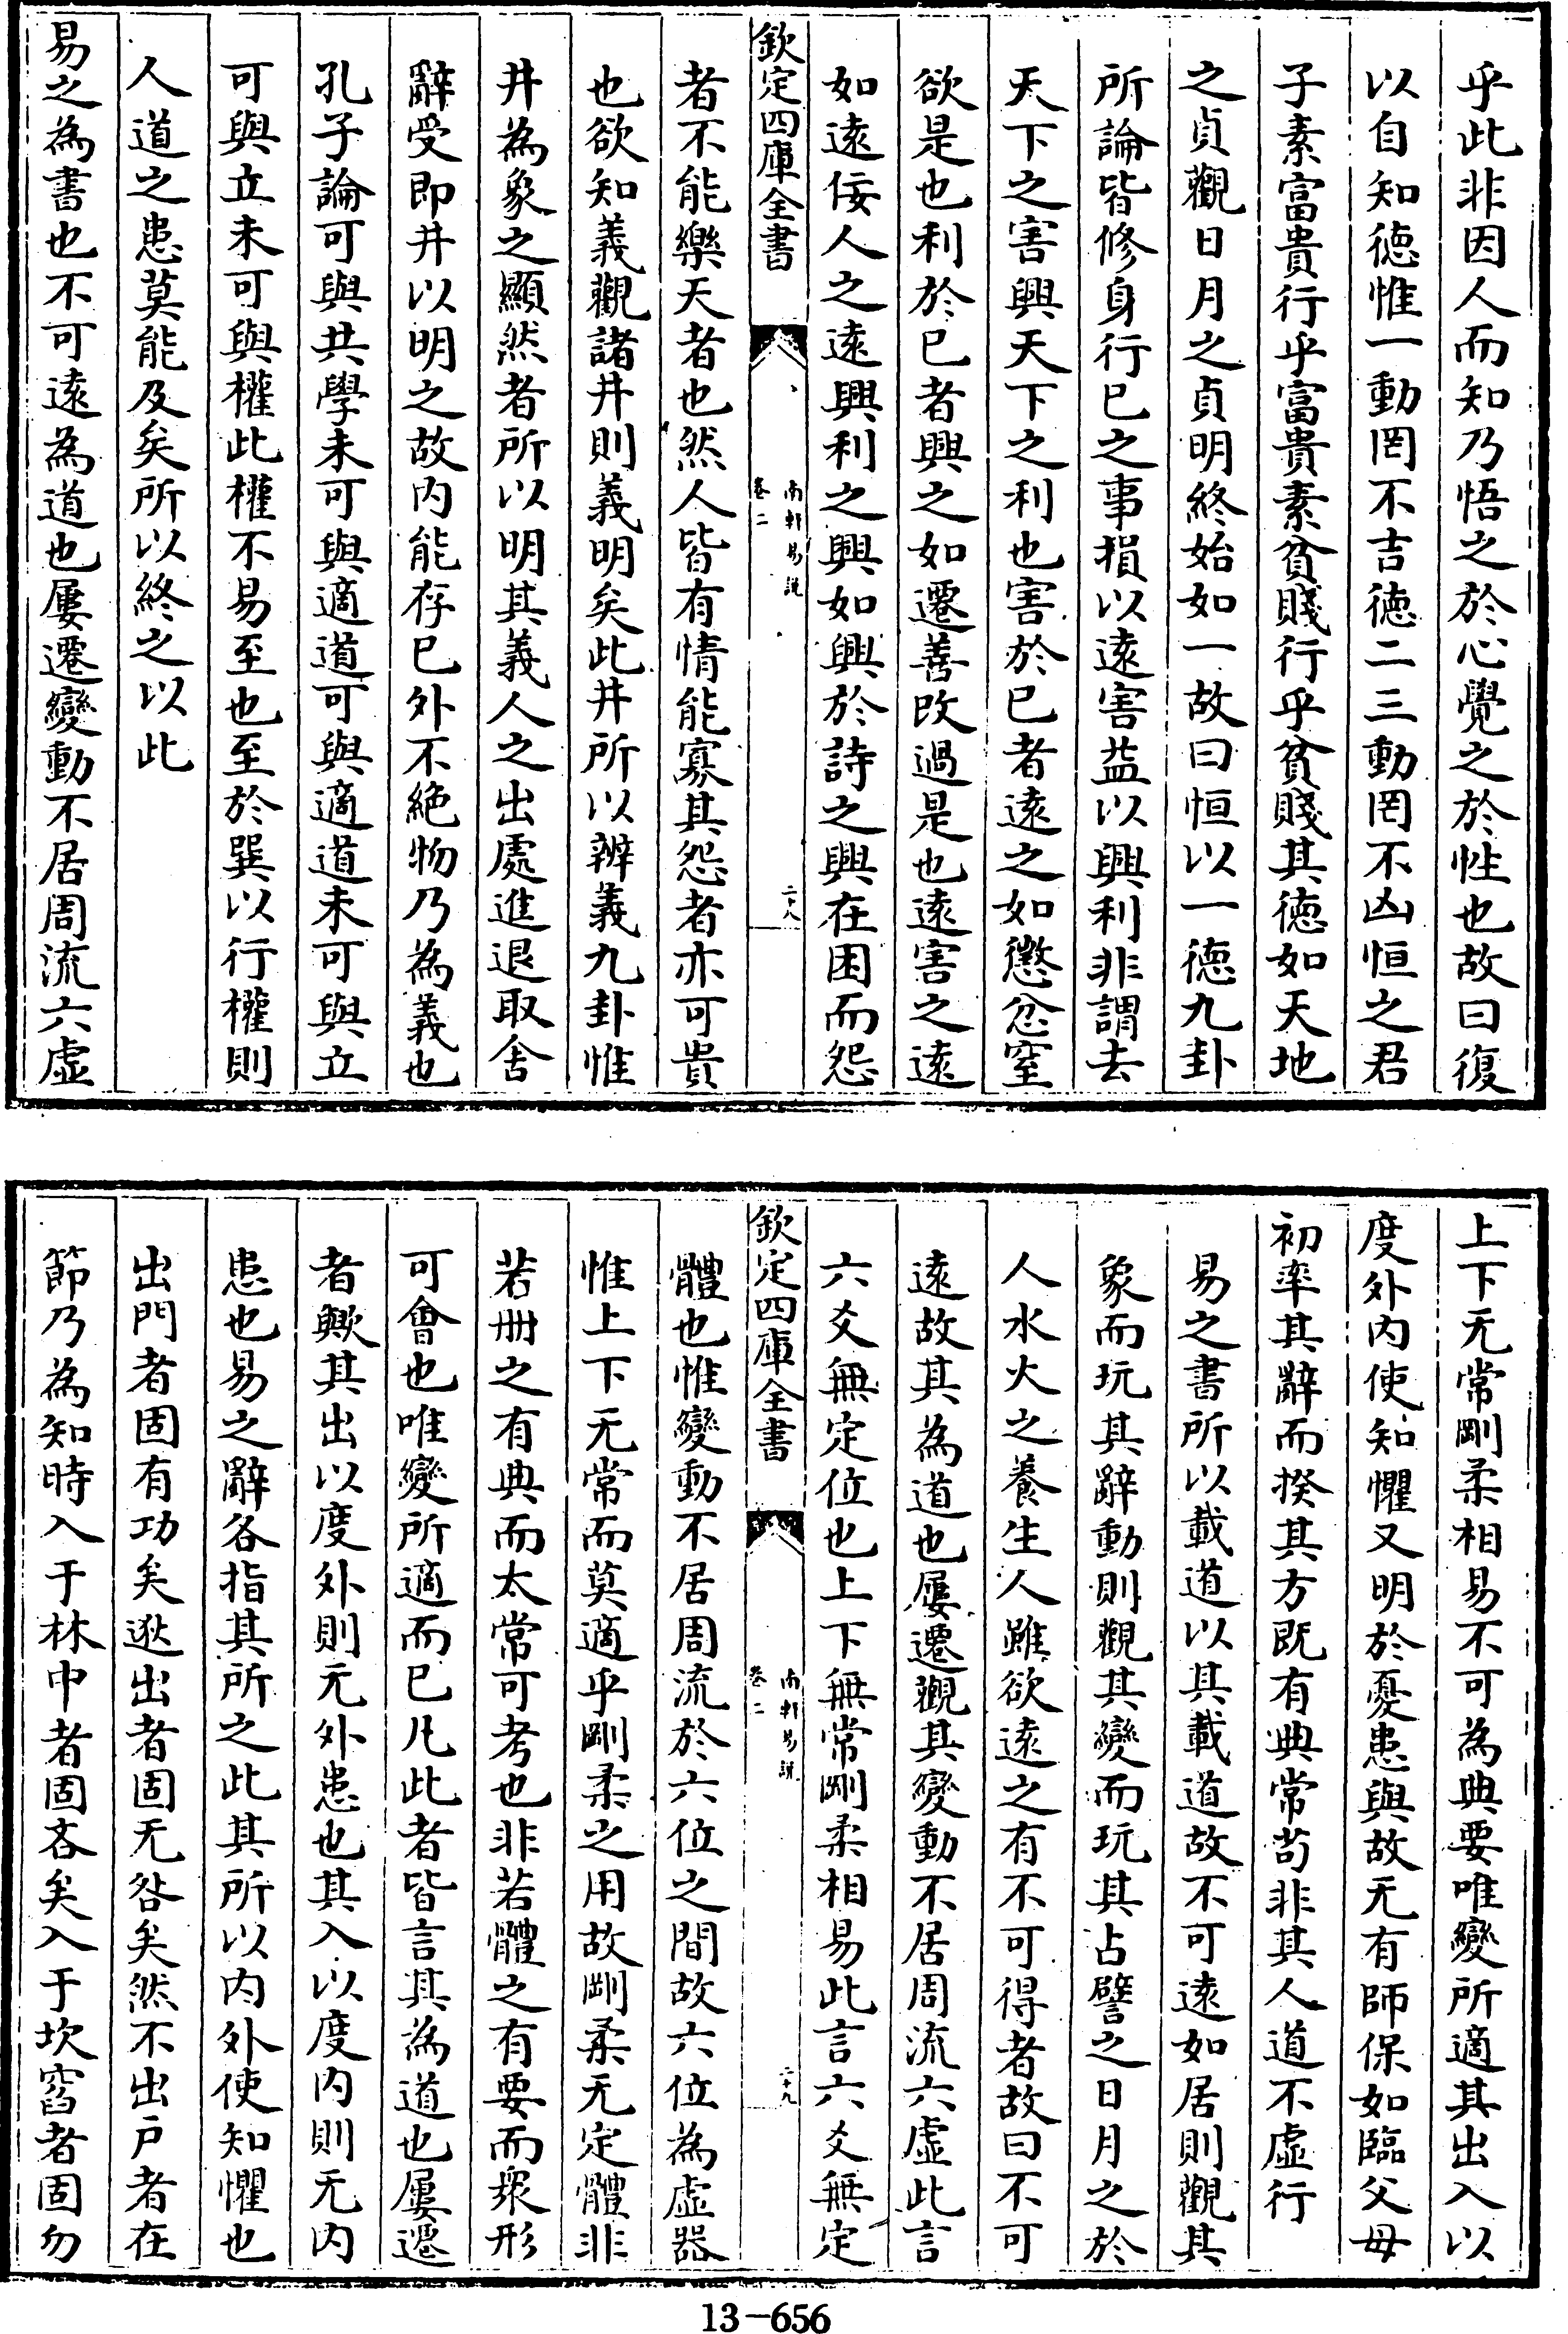 乎此非因人而知乃悟之於心覺之於性也故曰復
以自知徳惟一動罔不吉徳二三動罔不凶恒之君
子素富貴行乎富貴素貧賤行乎貧賤其徳如天地
之貞觀日月之貞明終始如一故曰恒以一徳九卦
所論皆修身行已之事損以遠害益以興利非謂去
天下之害興天下之利也害於已者遠之如懲忿窒
欲是也利於已者興之如遷善改過是也遠害之遠
如遠佞人之遠興利之興如興於詩之興在困而怨
欽定四庫全書
南軒易説
卷二
二十八
者不能樂天者也然人皆有情能寡其怨者亦可貴
也欲知義觀諸井則義明矣此井所以辨義九卦惟
井為象之顯然者所以明其義人之出處進退取舍
辭受即井以明之故内能存已外不絶物乃為義也
孔子論可與共學未可與適道可與適道未可與立
可與立未可與權此權不易至也至於巽以行權則
人道之患莫能及矣所以終之以此
易之為書也不可遠為道也屢遷變動不居周流六虛
上下无常剛柔相易不可為典要唯變所適其出入以
度外内使知懼又明於憂患與故无有師保如臨父母
初率其辭而揆其方既有典常苟非其人道不虛行
易之書所以載道以其載道故不可遠如居則觀其
象而玩其辭動則觀其變而玩其占譬之日月之於
人水火之養生人雖欲遠之有不可得者故曰不可
遠故其為道也屢遷觀其變動不居周流六虛此言
六爻無定位也上下無常剛柔相易此言六爻無定
欽定四庫全書
南軒易説
卷二
二十九
體也惟變動不居周流於六位之間故六位為虛器
惟上下无常而莫適乎剛柔之用故剛柔无定體非
若冊之有典而太常可考也非若體之有要而衆形
可會也唯變所適而已凡此者皆言其為道也屢遷
者歟其出以度外則无外患也其入以度内則无内
患也易之辭各指其所之此其所以内外使知懼也
出門者固有功矣逖出者固无咎矣然不出戶者在
節乃為知時入于林中者固吝矣入于坎窞者固勿
13-656